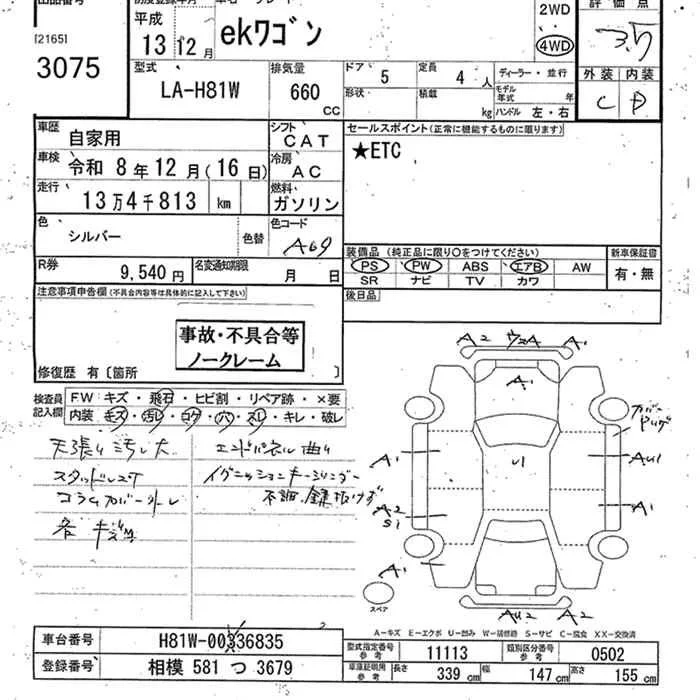 出品番号
[2165]
3075
初度登録年月
平成
13 12 月
車名・グレード
ekワゴン
2WD
4WD
評価点
3.5
外装 内装
C D
型式
LA-H81W
排気量
660
CC
ドア
5
定員
4 人
ディーラー・並行
形状
積載
kg
モデル年式 年
ハンドル 左・右
車歴
自家用
シフト
CAT
車検
令和 8 年 12 月 ( 16 日)
冷房
AC
走行
13万4千813 km
燃料
ガソリン
色
シルバー
色替
色コード
A69
R券
9,540 円
名変通知期限
月 日
セールスポイント(正常に機能するものに限ります)
★ETC
装備品 (純正品に限り○をつけてください)
新車保証書
PS PW ABS エアB AW
SR ナビ TV カワ
有・無
後日品
注意事項申告欄 (不具合内容等は具体的に記入して下さい)
事故・不具合等
ノークレーム
修復歴 有〔箇所 〕
検査員
記入欄
FW・キズ・飛石・ヒビ割・リペア跡・×要
内装・キズ・汚レ・コゲ・穴・スレ・キレ・破レ
天張り汚レ大
スタッドレスT
コラムカバースレ
各キズ凹
エンドパネル曲り
イグニッションキーシリンダー
不調 鍵抜けず
A2 A1
A1
A1
A2
S1
A1
AU1
A1
U1
AU2 A2
スペア
A-キズ E-エクボ U-凹み W-補修跡 S-サビ C-腐食 XX-交換済
車台番号
H81W-0036835
登録番号
相模 581 つ 3679
型式指定番号
参考
11113
類別区分番号
参考
0502
車庫証明用
参考
長さ 339 cm 幅 147 cm 高さ 155 cm